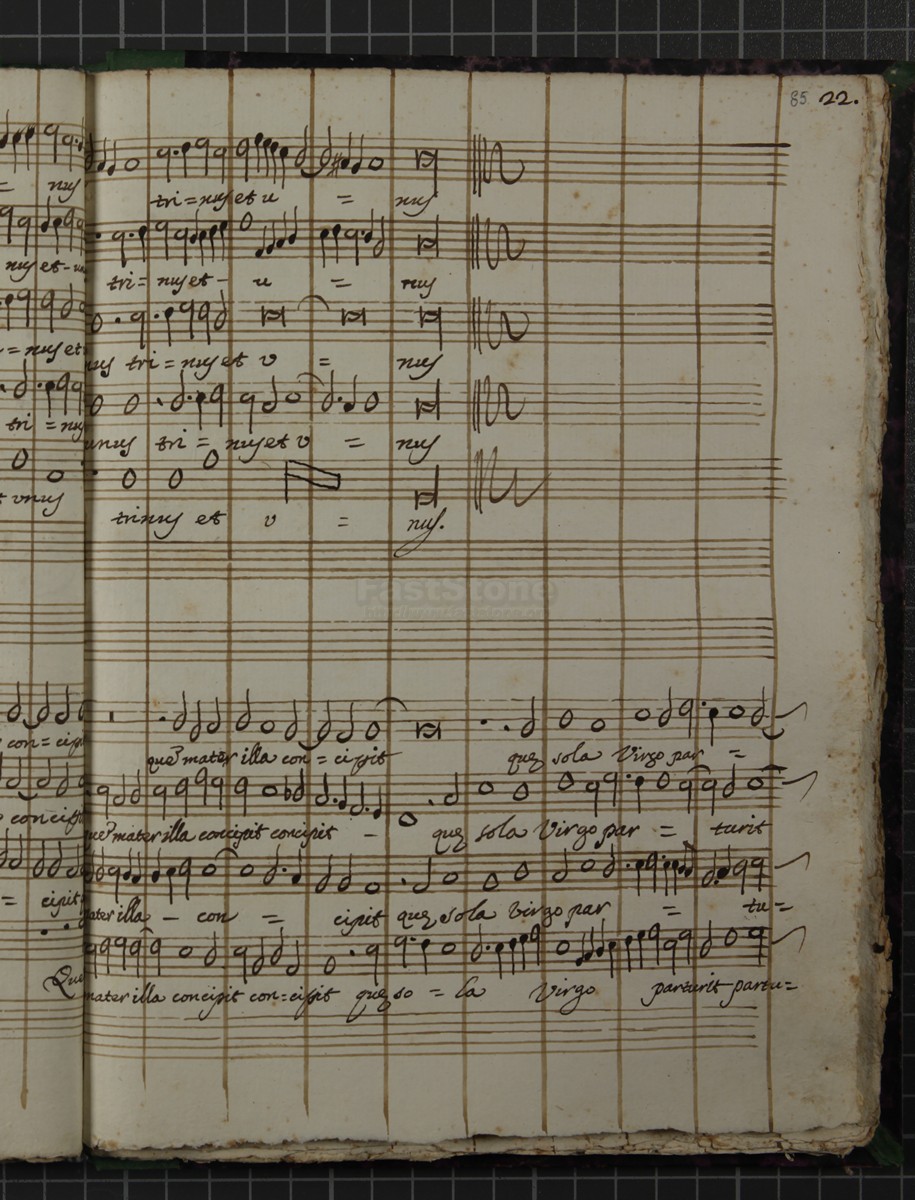 85 22.
= nus tri = nus et u = nus
nus et - tri = nus et - u = nus
= nus et nus tri = nus et v = nus
tri = nus unus tri = nus et v = nus
vnus trinus et v = nus.
FastStone
con = cipit que mater illa con = cipit que sola Virgo par =
concipit que mater illa concipit concipit - que sola Virgo par = turit
= cipit mater illa - con = cipit que sola Virgo par = tu =
Que mater illa concipit con = cipit que so = la Virgo parturit partu =